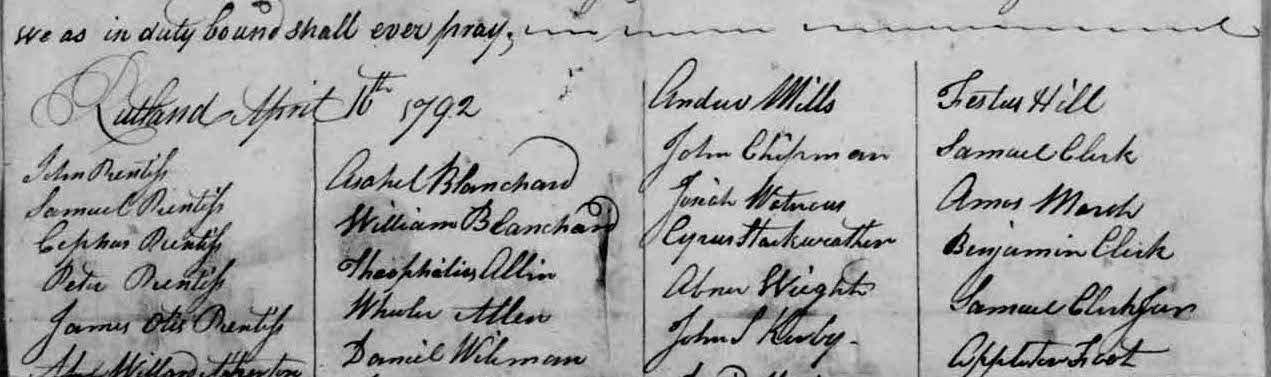 we as in duty bound shall ever pray;
Rutland April 16th 1792
John Prentiss
Samuel Prentiss
Cephas Prentiss
Peter Prentiss
James Otis Prentiss
Willard Atherton
Asahel Blanchard
William Blanchard
Theophilus Allin
Wheeler Allen
Daniel Wikman
Andrew Mills
John Chipman
Josiah Watrous
Cyrus Starkweather
Abner Wright
John S Kirby
Festus Hill
Samuel Clerk
Amos March
Benjamin Clerk
Samuel Clerk Jur
Appleton Foot